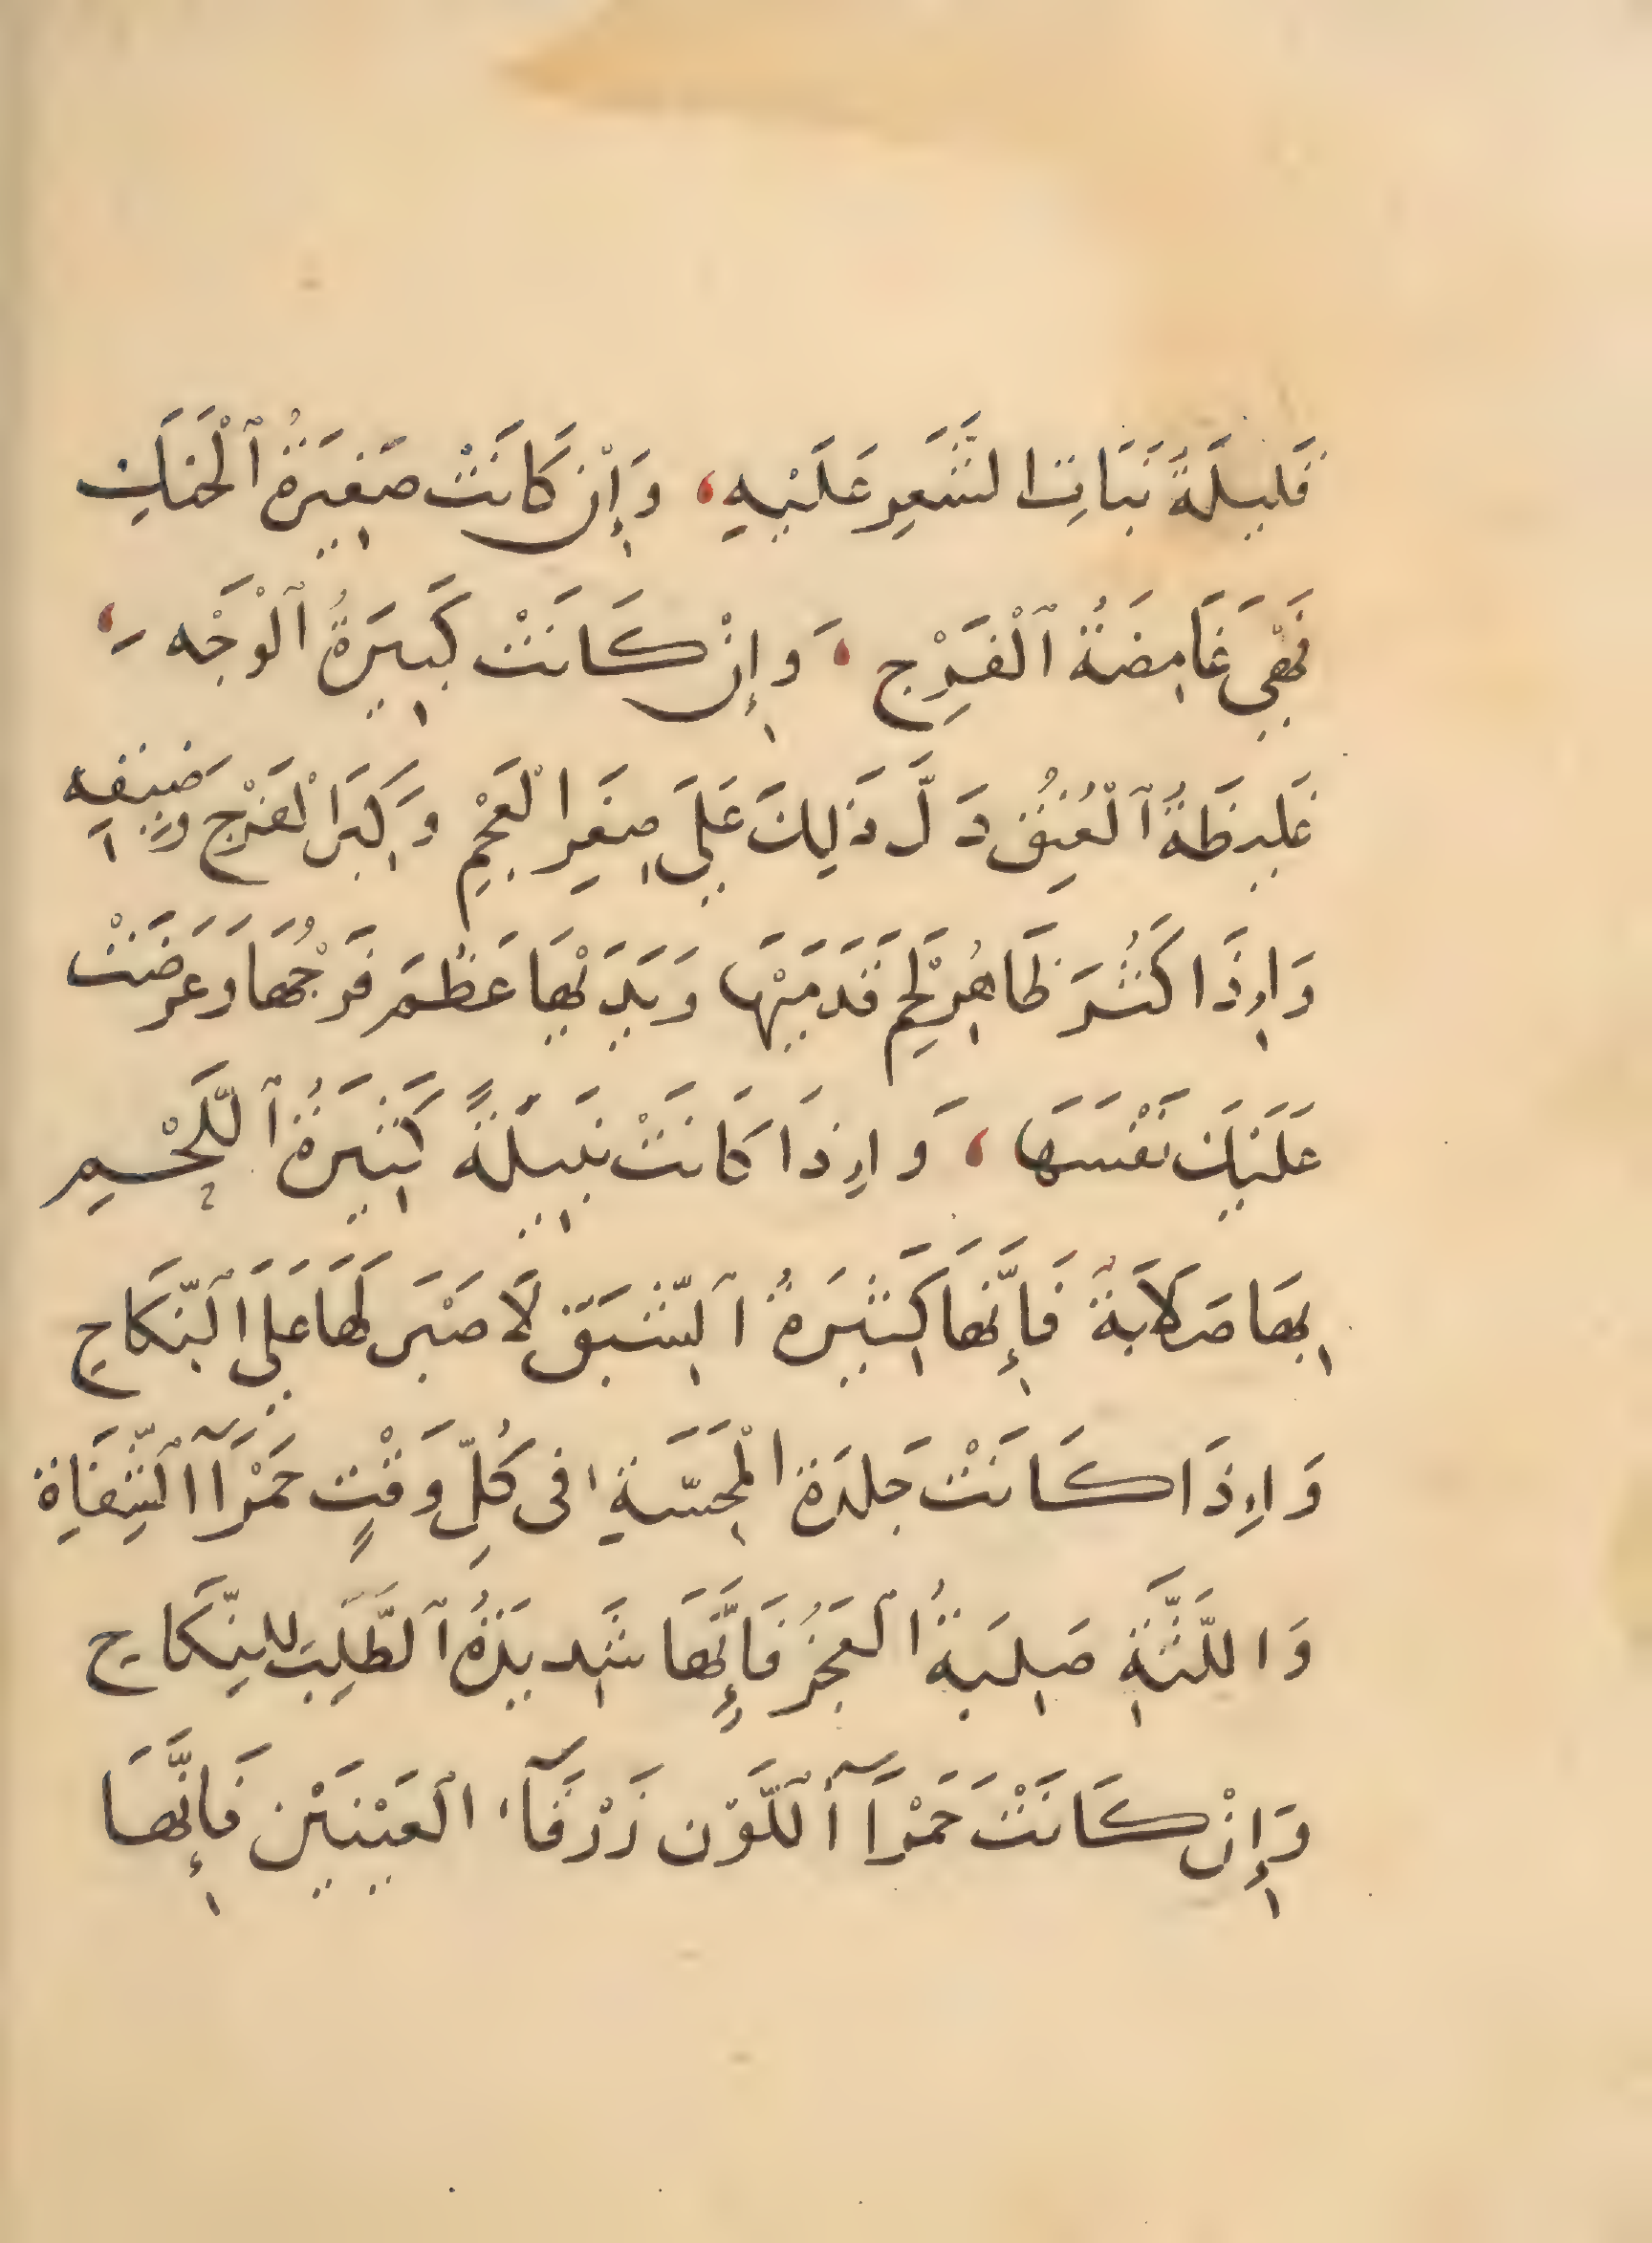 قَلِيلَةُ نَبَاتِ الشَّعَرِ عَلَيْهِ، وَإِنْ كَانَتْ صَغِيرَةُ ٱلْحَنَكِ
فَهِيَ غَامِضَةُ ٱلْفَرْجِ، وَإِنْ كَانَتْ كَبِيرَةُ ٱلْوَجْهِ،
غَلِيظَةُ ٱلْعُنُقِ دَلَّ ذَلِكَ عَلَى صِغَرِ الْعَجُزِ وَكِبَرِ الْفَرْجِ وَضِيقِهِ
وَإِذَا كَثُرَ ظَاهِرُ لَحْمِ قَدَمَيْهَا وَيَدَيْهَا عَظُمَ فَرْجُهَا وَعَرَضَتْ
عَلَيْكَ نَفْسَهَا، وَإِذَا كَانَتْ نَبِيلَةً كَثِيرَةُ ٱللَّحْمِ
بِهَا صَلَابَةٌ فَإِنَّهَا كَثِيرَةُ ٱلشَّبَقِ لَا صَبْرَ لَهَا عَلَى ٱلنِّكَاحِ
وَإِذَا كَانَتْ جَلِدَةَ الْمَجَسَّةِ فِي كُلِّ وَقْتٍ حَمْرَآءَ ٱلشِّفَاةِ
وَاللِّثَةِ صَلِبَةُ ٱلْعَجُزِ فَإِنَّهَا شَدِيدَةُ ٱلطَّلَبِ لِلنِّكَاحِ
وَإِنْ كَانَتْ حَمْرَآءَ ٱللَّوْنِ زَرْقَآءَ ٱلْعَيْنَيْنِ فَإِنَّهَا